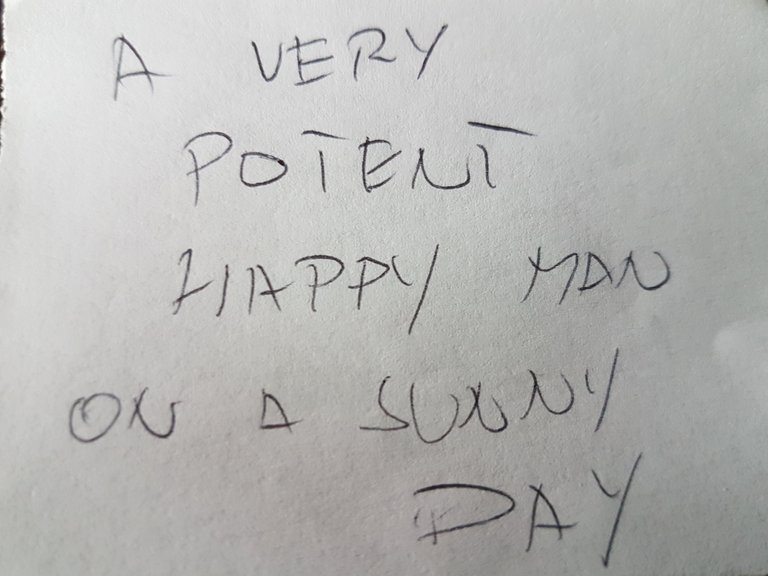 A VERY
POTENT
HAPPY MAN
ON A SUNNY
DAY